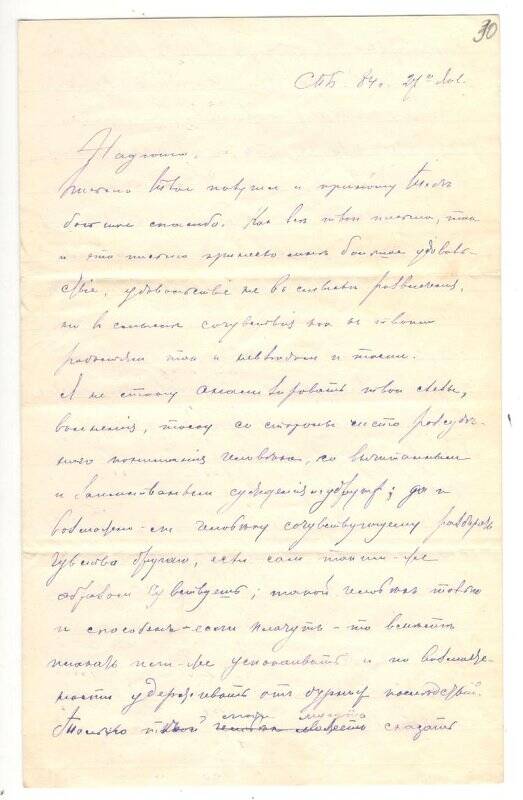 30
СПБ. 84 г. 27го
Надюша,
письмо твое получил и приношу тебе
большое спасибо. Как все твои письма, так
и это письмо принесло мне большое удоволь-
ствіе, удовольствіе не въ смыслѣ развлеченія,
но въ смыслѣ сочувствія какъ къ твоимъ
радостямъ такъ и невзгодамъ и тоскѣ.
Я не стану анализировать твои слезы,
волненія, тоску со стороны чисто разсудоч-
наго пониманія человѣка, со вычитанными
и заимствованными сужденіями у другихъ; да и
возможно-ли человѣку сочувствующему разбирать
чувства другаго, если самъ такимъ-же
образомъ чувствуетъ; такой человѣкъ только
и способенъ-если плачутъ-то вмѣстѣ
плакать или-же успокаивать и по возмож-
ности удерживать отъ дурныхъ послѣдствій.
Только сказать